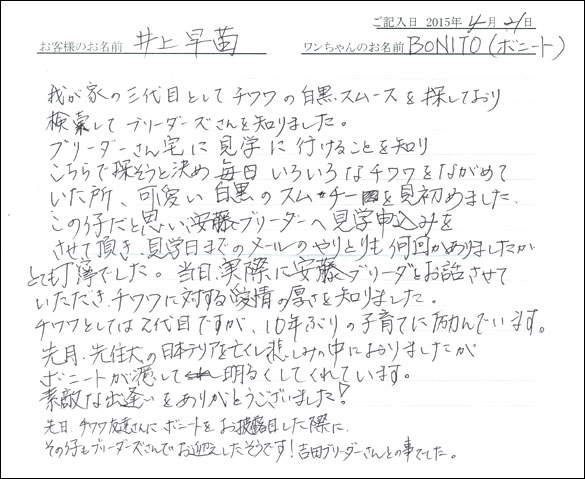 ご記入日 2015年 4月 21日
お客様のお名前 井上早苗 ワンちゃんのお名前 BONITO(ボニート)
我が家の三代目としてチワワの白黒スムースを探しており
検索してブリーダーズさんを知りました。
ブリーダーさん宅に見学に行けることを知り
こちらで探そうと決め毎日いろいろなチワワをながめて
いた所、可愛い白黒のスムーチーを見初めました。
この子だと思い、安藤ブリーダーへ見学申込みを
させて頂き、見学日までのメールのやりとりも何回かありましたが
とても丁寧でした。当日、実際に安藤ブリーダーとお話させて
いただき、チワワに対する愛情の厚さを知りました。
チワワとしては2代目ですが、10年ぶりの子育てに励んでいます。
先月、先住犬の日本テリアを亡くし悲しみの中におりましたが
ボニートが癒して明るくしてくれています。
素敵な出逢いをありがとうございました!
先日、チワワ友達さんにボニートをお披露目した際に、
その子もブリーダーズさんでお迎えしたそうです!吉田ブリーダーさんとの事でした。